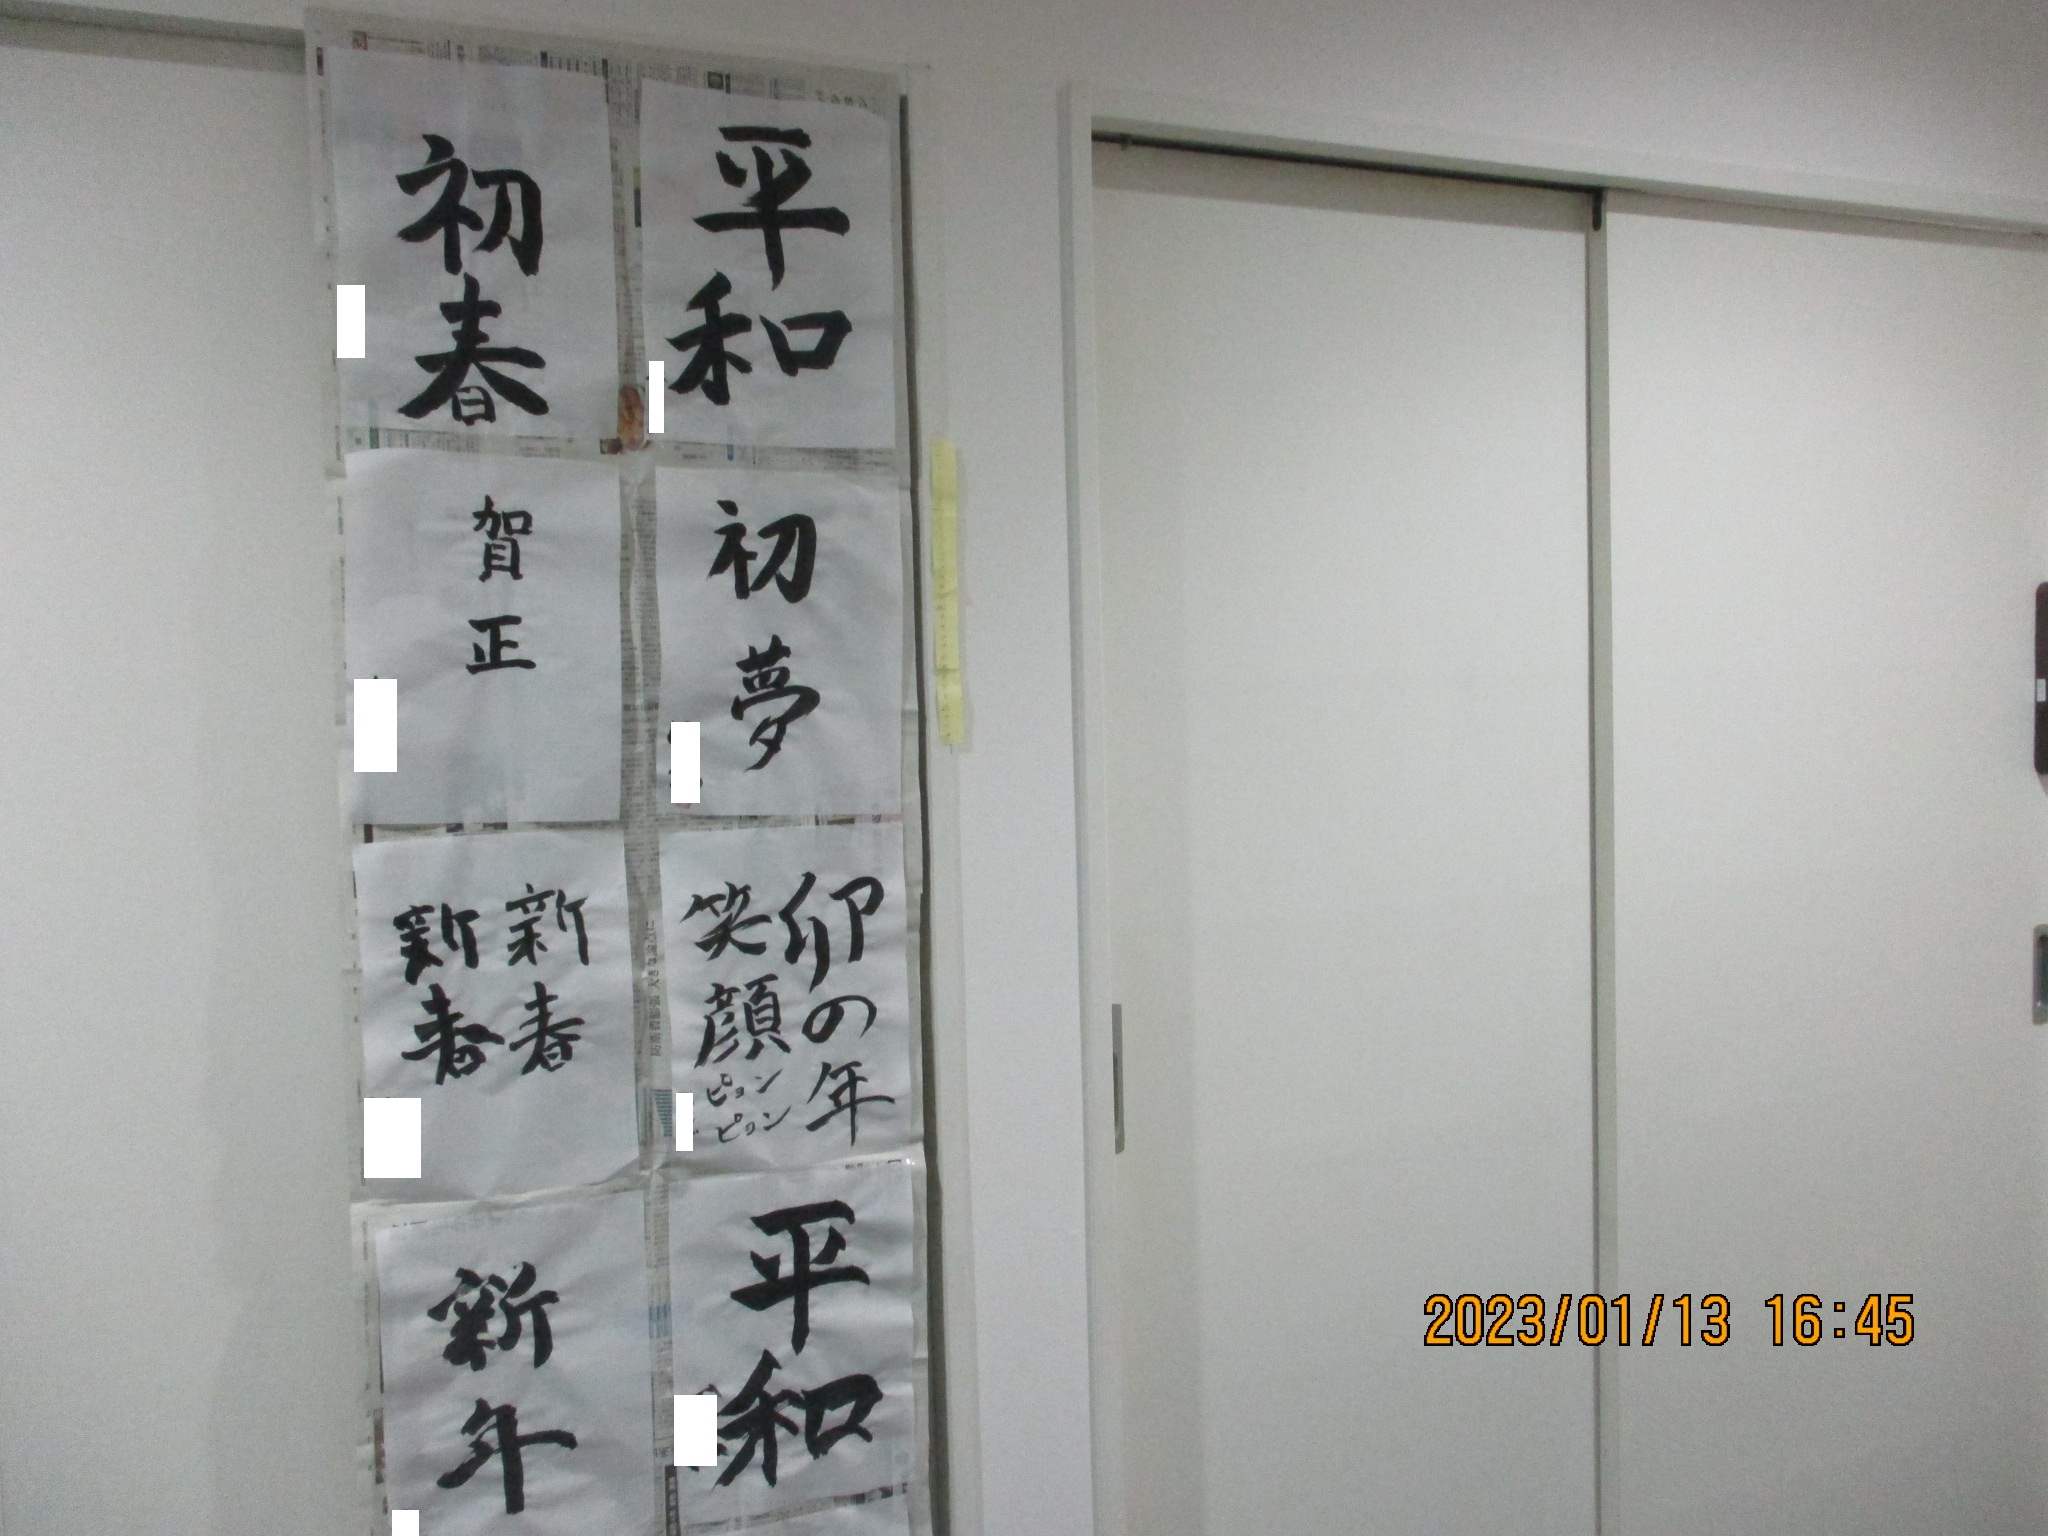 平和
初春
初夢
賀正
卯の年
笑顔
ピョン
ピョン
新春
新春
平和
新年
2023/01/13 16:45